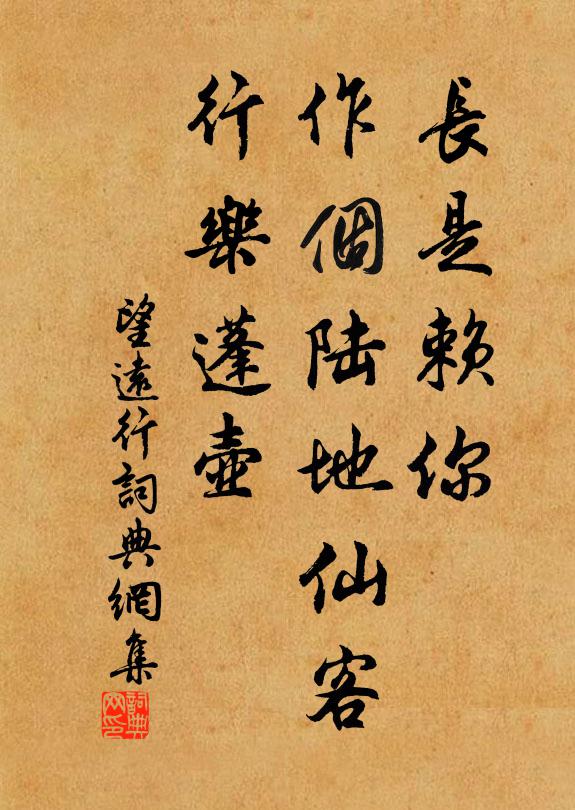 長是賴你
作個陸地仙客
行樂蓬壺
望遠行詞典網集
詞典
网印